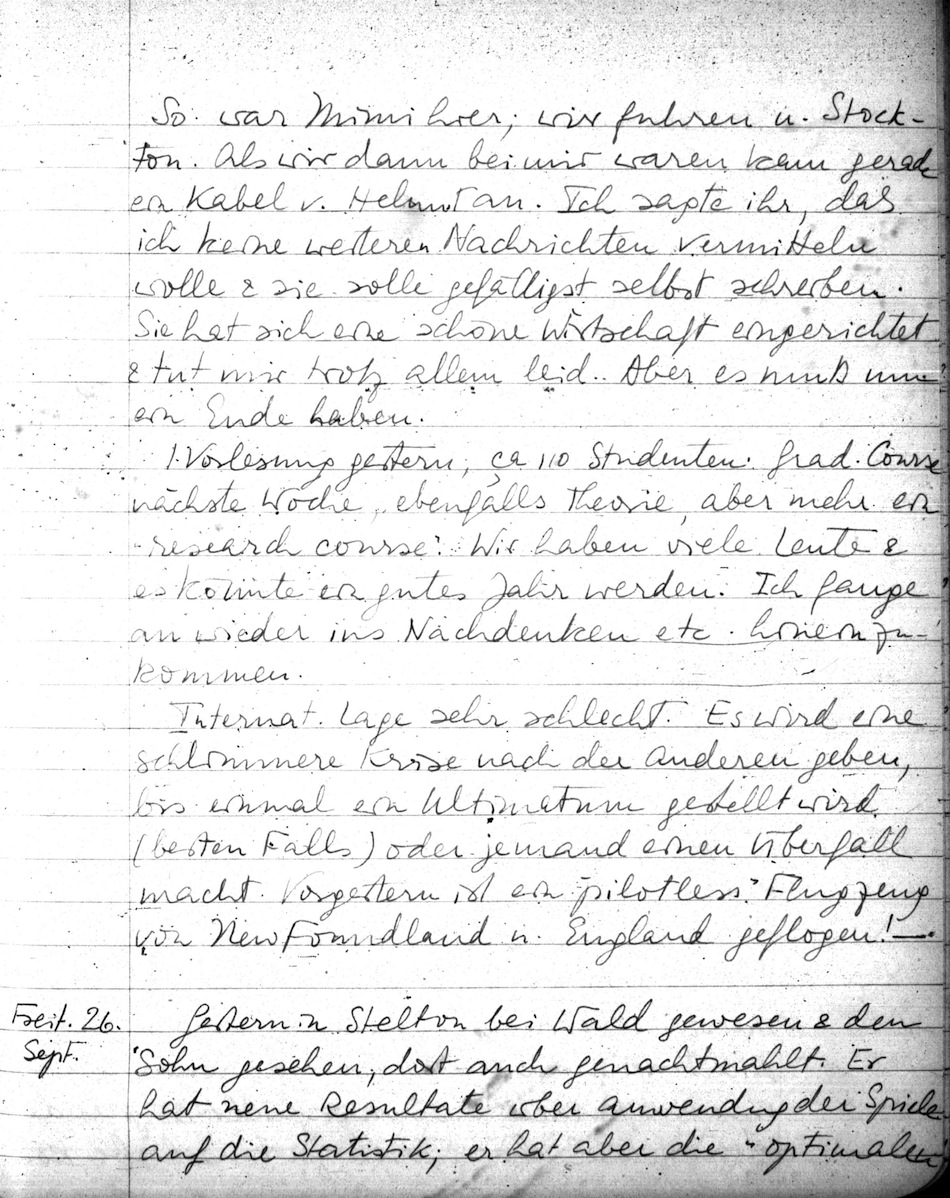 So. war Mimi hier; wir fuhren n. Stock-
ton. Als wir dann bei mir waren kam gerade
ein Kabel v. Helmut an. Ich sagte ihr, daß
ich keine weiteren Nachrichten vermitteln
wolle & sie solle gefälligst selbst schreiben.
Sie hat sich eine schöne Wirtschaft eingerichtet
& tut mir trotz allem leid.. Aber es muß nun
ein Ende haben.
1. Vorlesung gestern, ca 110 Studenten. Grad. Course
nächste Woche, ebenfalls Theorie, aber mehr ein
"research course". Wir haben viele Leute &
es könnte ein gutes Jahr werden. Ich fange
an wieder ins Nachdenken etc. hineinzu-
kommen.
Internat. Lage sehr schlecht. Es wird eine
schlimmere Krise nach der anderen geben,
bis einmal ein Ultimatum gestellt wird
(besten Falls) oder jemand einen Überfall
macht. Vorgestern ist ein "pilotless" Flugzeug
von New Foundland n. England geflogen! —.
Freit. 26.
Sept.
Gestern in Stelton bei Wald gewesen & den
Sohn gesehen, dort auch genachtmahlt. Er
hat neue Resultate über Anwendung der Spiele
auf die Statistik; er hat aber die "optimalen